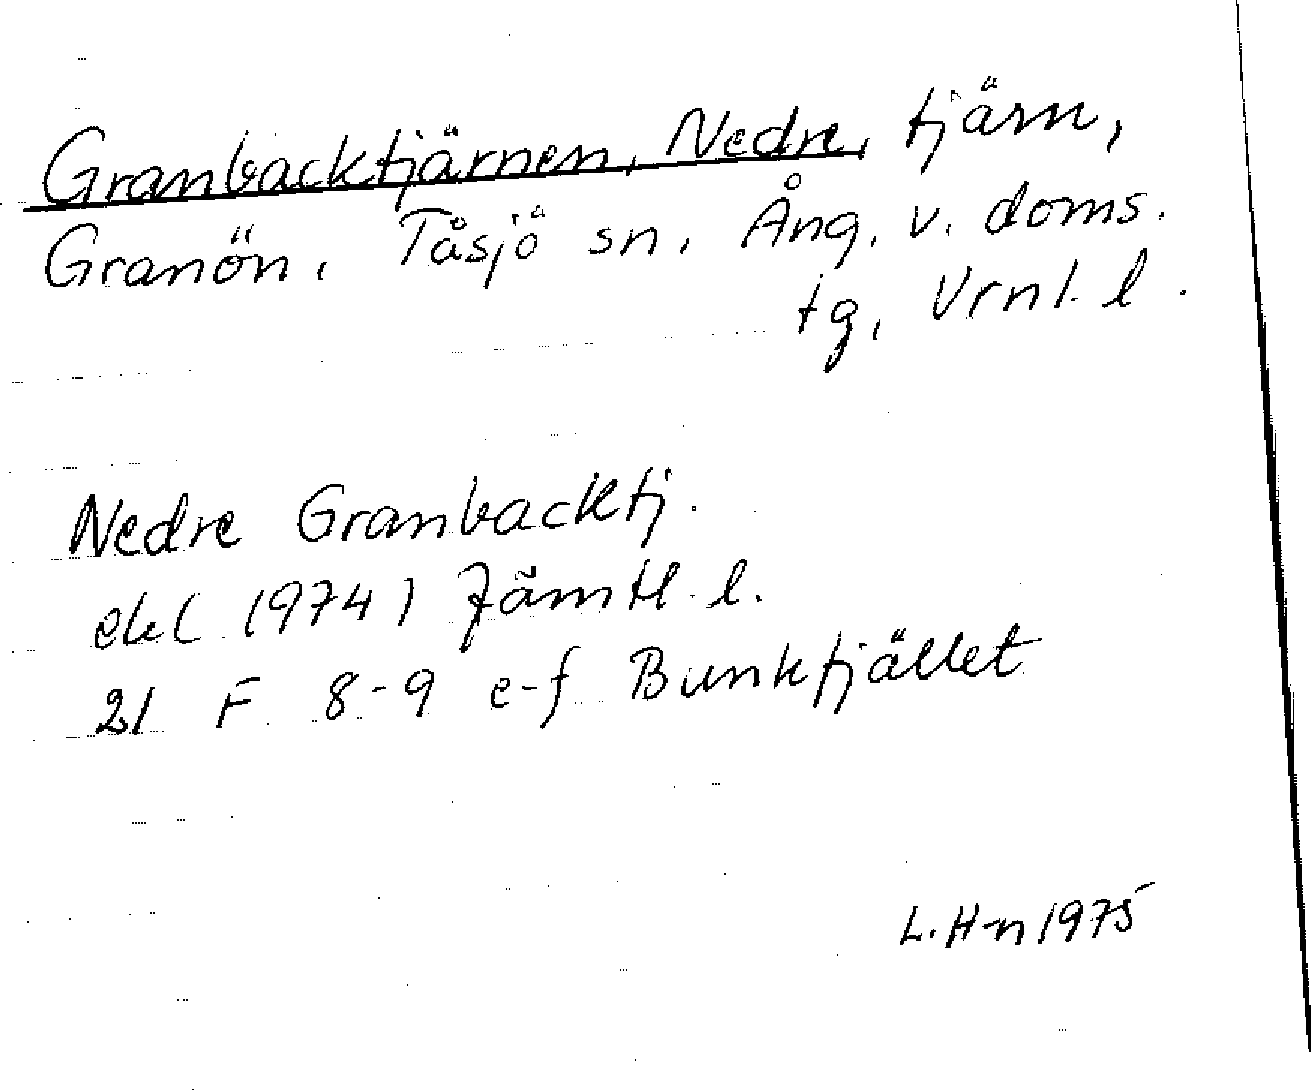 Granbacktjärnen, Nedre, tjärn,
Granön, Tåsjö sn, Ång. v. doms.
tg, Vrnl. l.
Nedre Granbacktj.
ekl (1974) Jämtl. l.
21 F 8-9 e-f Bunkfjället
L. H-n 1975